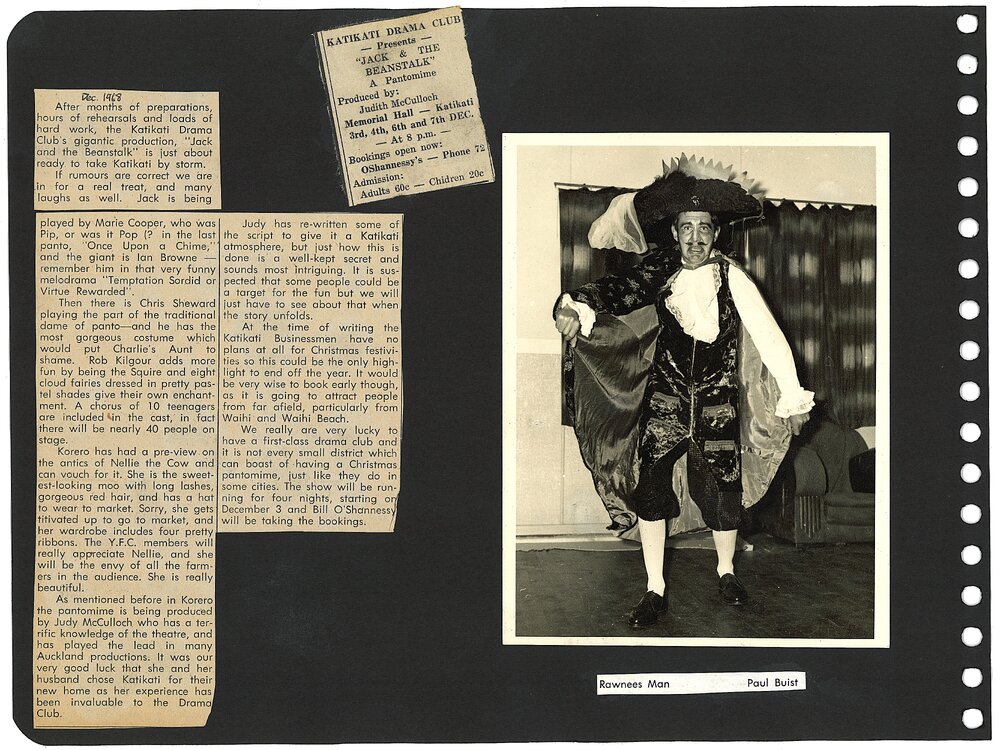 Dec. 1968
After months of preparations,
hours of rehearsals and loads of
hard work, the Katikati Drama
Club's gigantic production, "Jack
and the Beanstalk" is just about
ready to take Katikati by storm.
If rumours are correct we are
in for a real treat, and many
laughs as well. Jack is being
played by Marie Cooper, who was
Pip, or was it Pop (? in the last
panto, "Once Upon a Chime,"
and the giant is Ian Browne —
remember him in that very funny
melodrama "Temptation Sordid or
Virtue Rewarded".
Then there is Chris Sheward
playing the part of the traditional
dame of panto—and he has the
most gorgeous costume which
would put Charlie's Aunt to
shame. Rob Kilgour adds more
fun by being the Squire and eight
cloud fairies dressed in pretty pas-
tel shades give their own enchant-
ment. A chorus of 10 teenagers
are included in the cast, in fact
there will be nearly 40 people on
stage.
Korero has had a pre-view on
the antics of Nellie the Cow and
can vouch for it. She is the sweet-
est-looking moo with long lashes,
gorgeous red hair, and has a hat
to wear to market. Sorry, she gets
titivated up to go to market, and
her wardrobe includes four pretty
ribbons. The Y.F.C. members will
really appreciate Nellie, and she
will be the envy of all the farm-
ers in the audience. She is really
beautiful.
As mentioned before in Korero
the pantomime is being produced
by Judy McCulloch who has a ter-
rific knowledge of the theatre, and
has played the lead in many
Auckland productions. It was our
very good luck that she and her
husband chose Katikati for their
new home as her experience has
been invaluable to the Drama
Club.
Judy has re-written some of
the script to give it a Katikati
atmosphere, but just how this is
done is a well-kept secret and
sounds most intriguing. It is sus-
pected that some people could be
a target for the fun but we will
just have to see about that when
the story unfolds.
At the time of writing the
Katikati Businessmen have no
plans at all for Christmas festivi-
ties so this could be the only high-
light to end off the year. It would
be very wise to book early though,
as it is going to attract people
from far afield, particularly from
Waihi and Waihi Beach.
We really are very lucky to
have a first-class drama club and
it is not every small district which
can boast of having a Christmas
pantomime, just like they do in
some cities. The show will be run-
ning for four nights, starting on
December 3 and Bill O'Shannessy
will be taking the bookings.
KATIKATI DRAMA CLUB
— Presents —
"JACK & THE
BEANSTALK"
A Pantomime
Produced by:
Judith McCulloch
Memorial Hall — Katikati
3rd, 4th, 6th and 7th DEC.
— At 8 p.m. —
Bookings open now:
OShannessy's — Phone 72
Admission:
Adults 60c — Chidren 20c
Rawnees Man Paul Buist